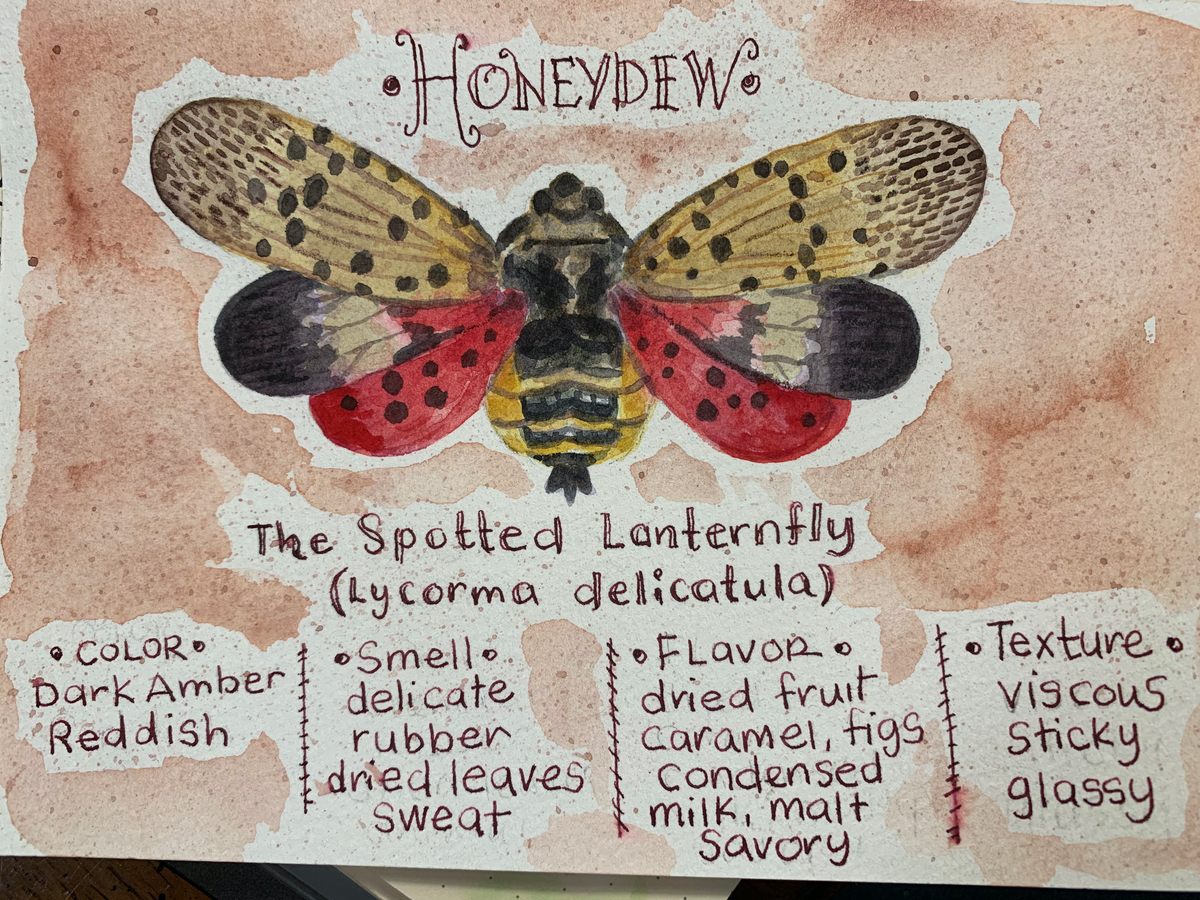 • HONEYDEW •
The Spotted Lanternfly
(Lycorma delicatula)
• COLOR •
Dark Amber
Reddish
• Smell •
delicate
rubber
dried leaves
sweat
• FLavoR •
dried fruit
caramel, figs
condensed
milk, malt
Savory
• Texture •
viscous
Sticky
glassy